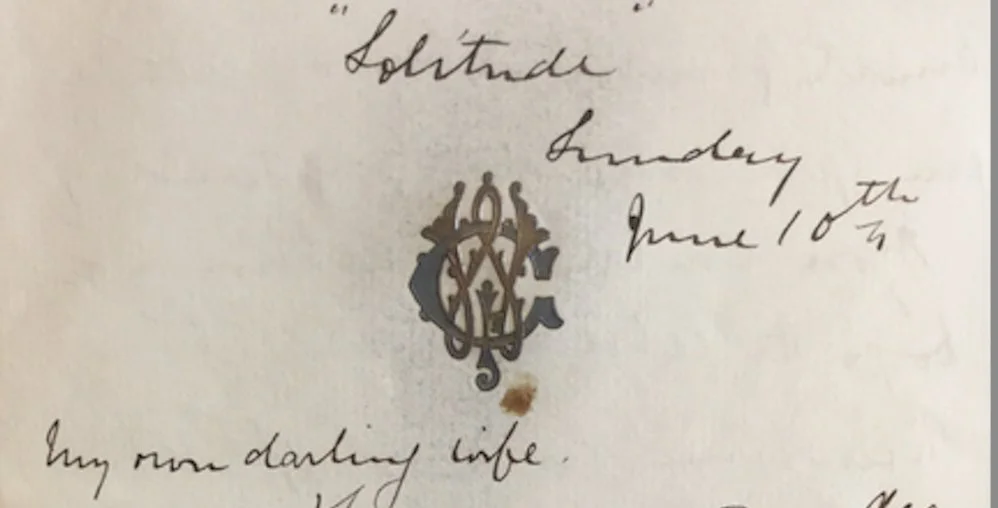 "Solitude"
Sunday
June 10th
My own darling wife.